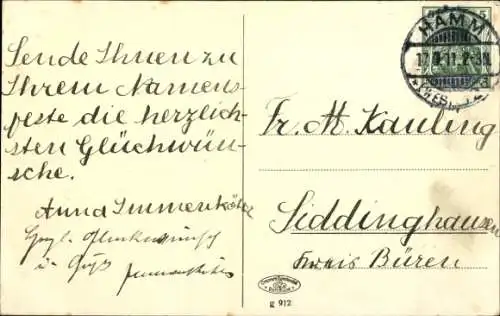 Sende Ihnen zu
Ihrem Namens-
feste die herzlich-
sten Glückwün-
sche.
Anna Immenkötter
u. Gruß
HAMM
5
Fr. M. Kauling
Siddinghausen
Kreis Büren
g 912